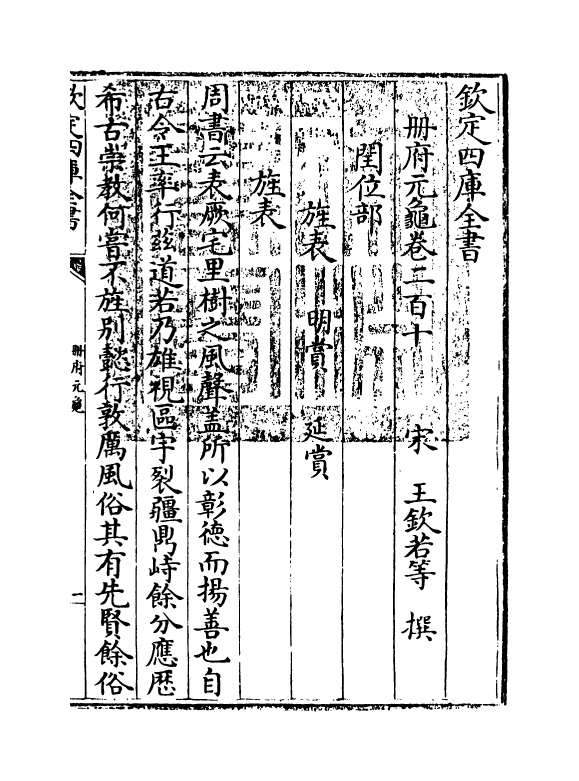 欽定四庫全書
冊府元龜卷二百十　宋　王欽若等　撰
閏位部
旌表　明賞　延賞
旌表
周書云表厥宅里樹之風聲盖所以彰德而揚善也自
古令王率行兹道若乃雄視區宇裂疆鼎峙餘分應歴
希古崇教何嘗不旌别懿行敦厲風俗其有先賢餘俗
欽定四庫全書
冊府元龜